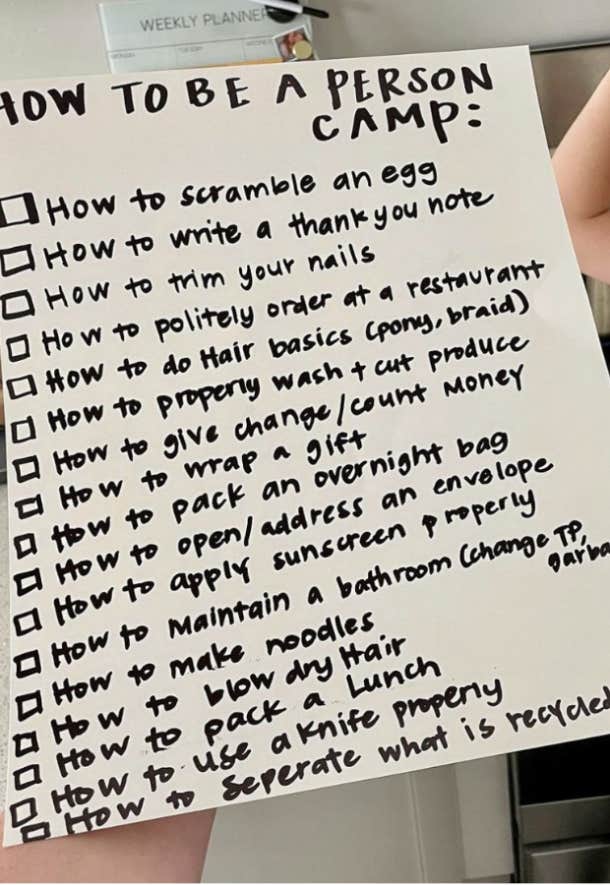 WEEKLY PLANNER
HOW TO BE A PERSON
CAMP:
How to scramble an egg
How to write a thank you note
How to trim your nails
How to politely order at a restaurant
How to do Hair basics (pony, braid)
How to properly wash + cut produce
How to give change/count Money
How to wrap a gift
How to pack an overnight bag
How to open/address an envelope
How to apply sunscreen properly
How to Maintain a bathroom (change TP,
garba
How to make noodles
How to blow dry Hair
How to pack a Lunch
How to use a knife properly
How to Seperate what is recycled